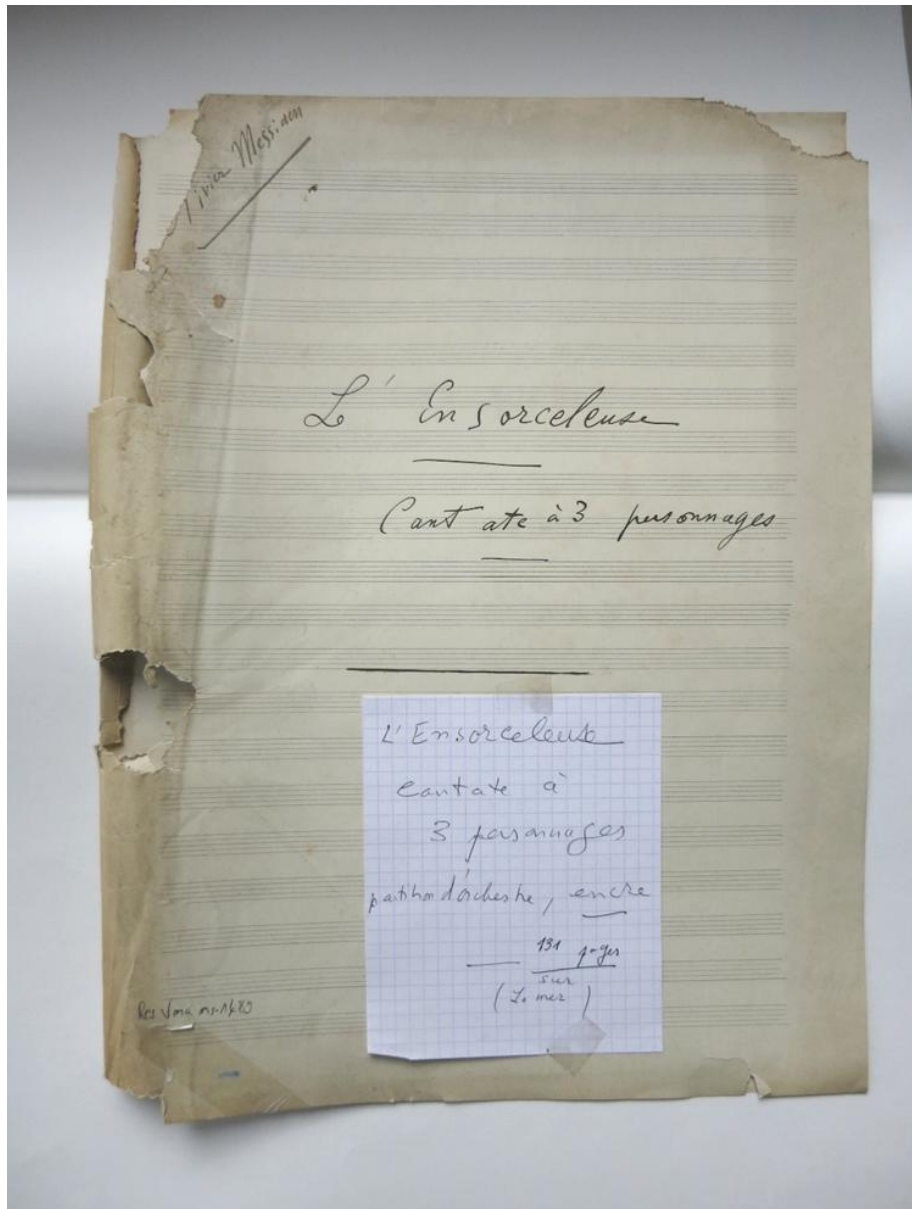 Olivier Messiaen
L'Ensorceleuse
Cantate à 3 personnages
L'Ensorceleuse
cantate à
3 personnages
partition d'orchestre, encre
131 pages
sur
Res Vma ms-1489